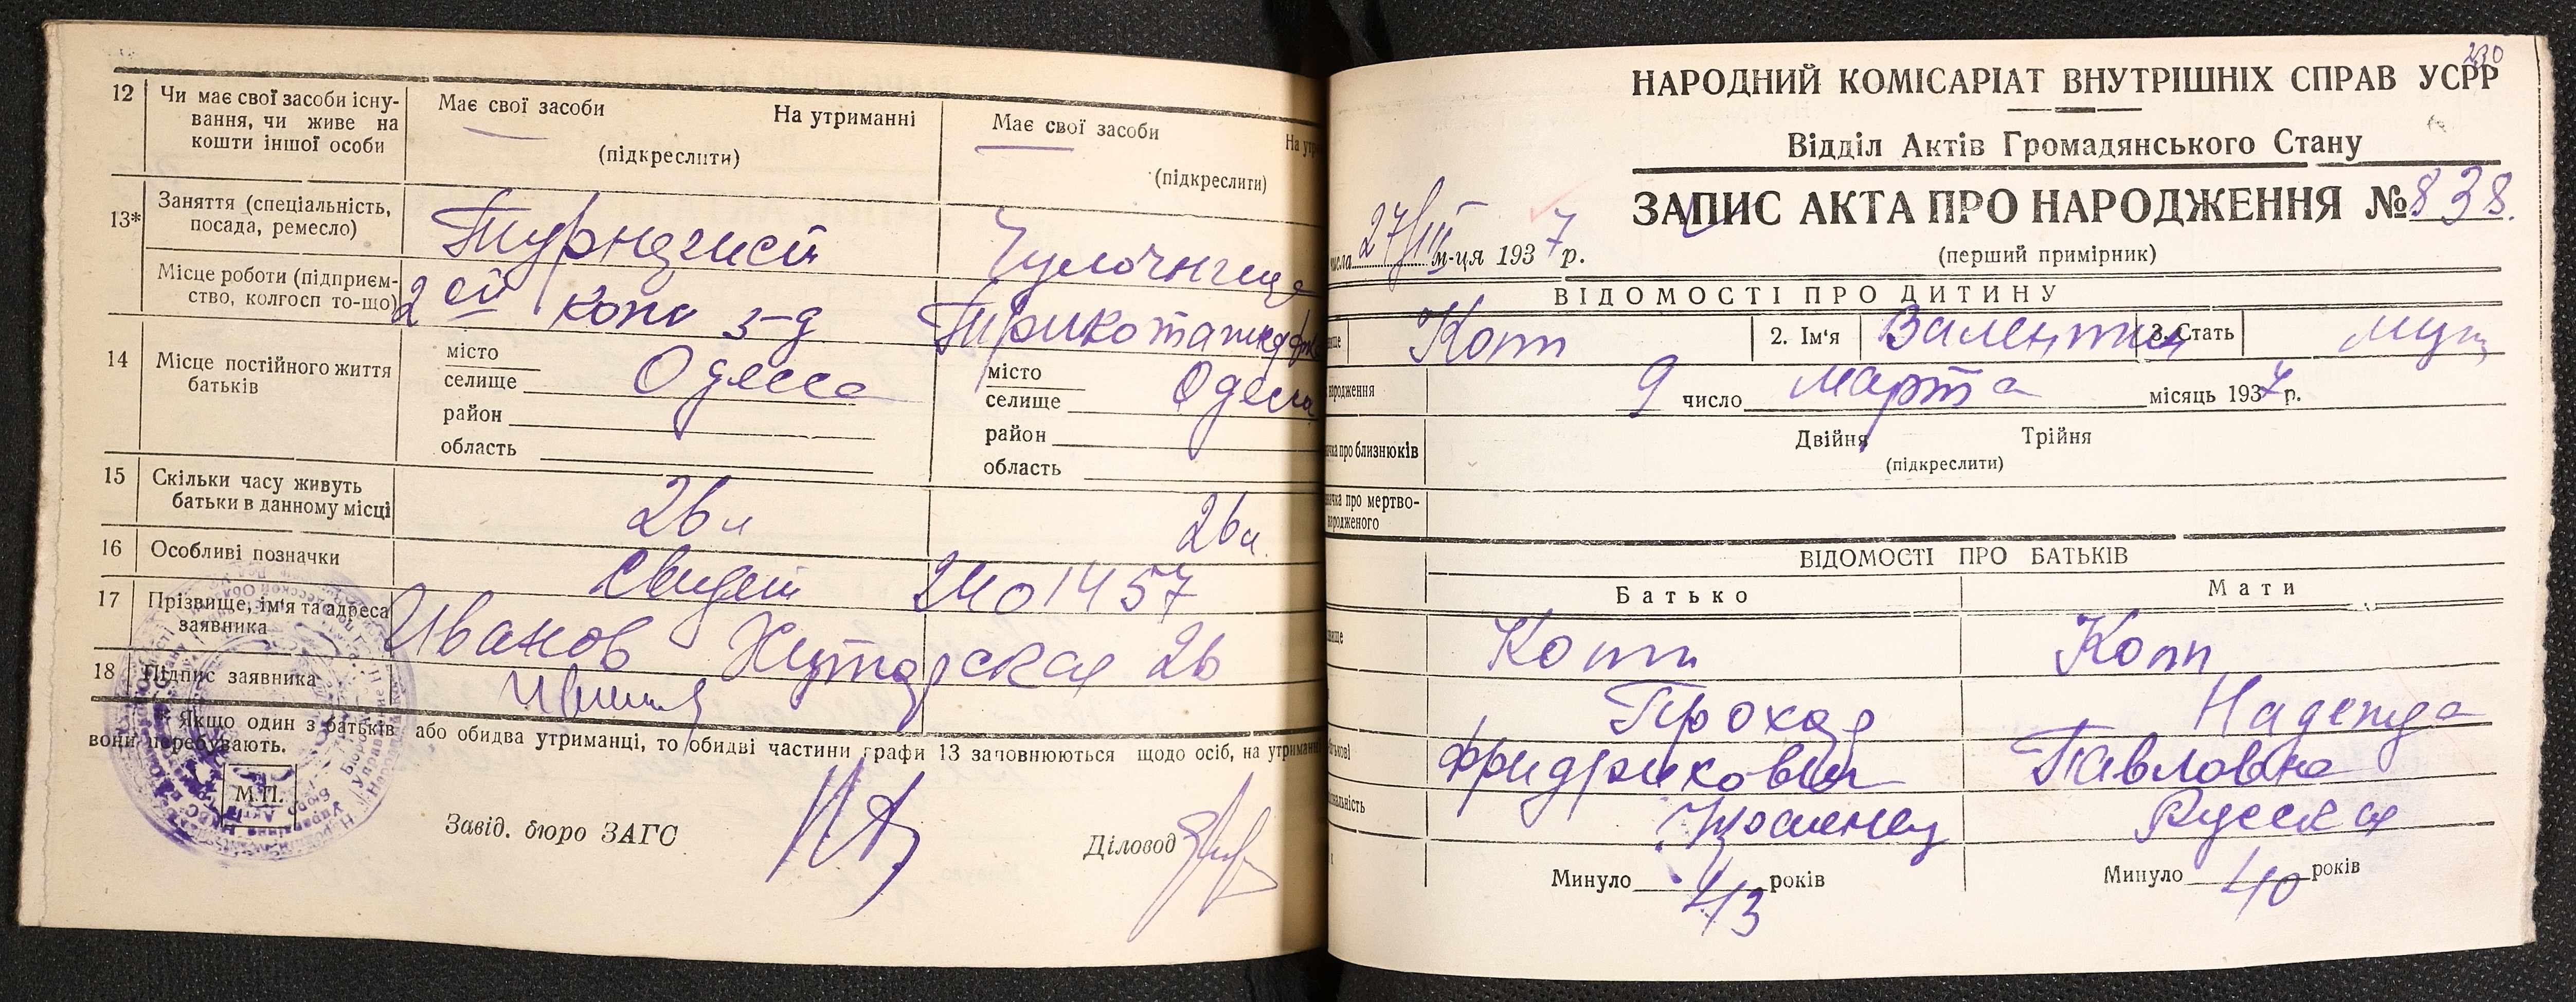 12
Чи має свої засоби існу-
вання, чи живе на
кошти іншої особи
Має свої засоби
На утриманні
(підкреслити)
Має свої засоби
На утр
(підкреслити)
13*
Заняття (спеціальність,
посада, ремесло)
Чулочница
Місце роботи (підприєм-
ство, колгосп то-що)
2ой конс з-д
14
Місце постійного життя
батьків
місто
селище
Одесса
район
область
місто
селище
Одесса
район
область
15
Скільки часу живуть
батьки в данному місці
16
Особливі позначки
свидет 2401457
17
Прізвище, ім'я та адреса
заявника
Иванов Хуторская 26
18
Підпис заявника
* Якщо один з батьків або обидва утриманці, то обидві частини графи 13 заповнюються щодо осіб, на утриманні
вони перебувають.
М.П.
Завід. бюро ЗАГС
Діловод
230
НАРОДНИЙ КОМІСАРІАТ ВНУТРІШНІХ СПРАВ УСРР
Відділ Актів Громадянського Стану
ЗАПИС АКТА ПРО НАРОДЖЕННЯ № 838.
числа 27/III м-ця 1937 р.
(перший примірник)
ВІДОМОСТІ ПРО ДИТИНУ
Копп
2. Ім'я
Валентин
3. Стать
муж
народження
9 число марта місяць 1937 р.
чка про близнюків
Двійня
Трійня
(підкреслити)
чка про мертво-
народженого
ВІДОМОСТІ ПРО БАТЬКІВ
Батько
Мати
Копп
Копп
Надежда
Фридрихович
Павловна
Русская
Минуло 43 років
Минуло 40 років